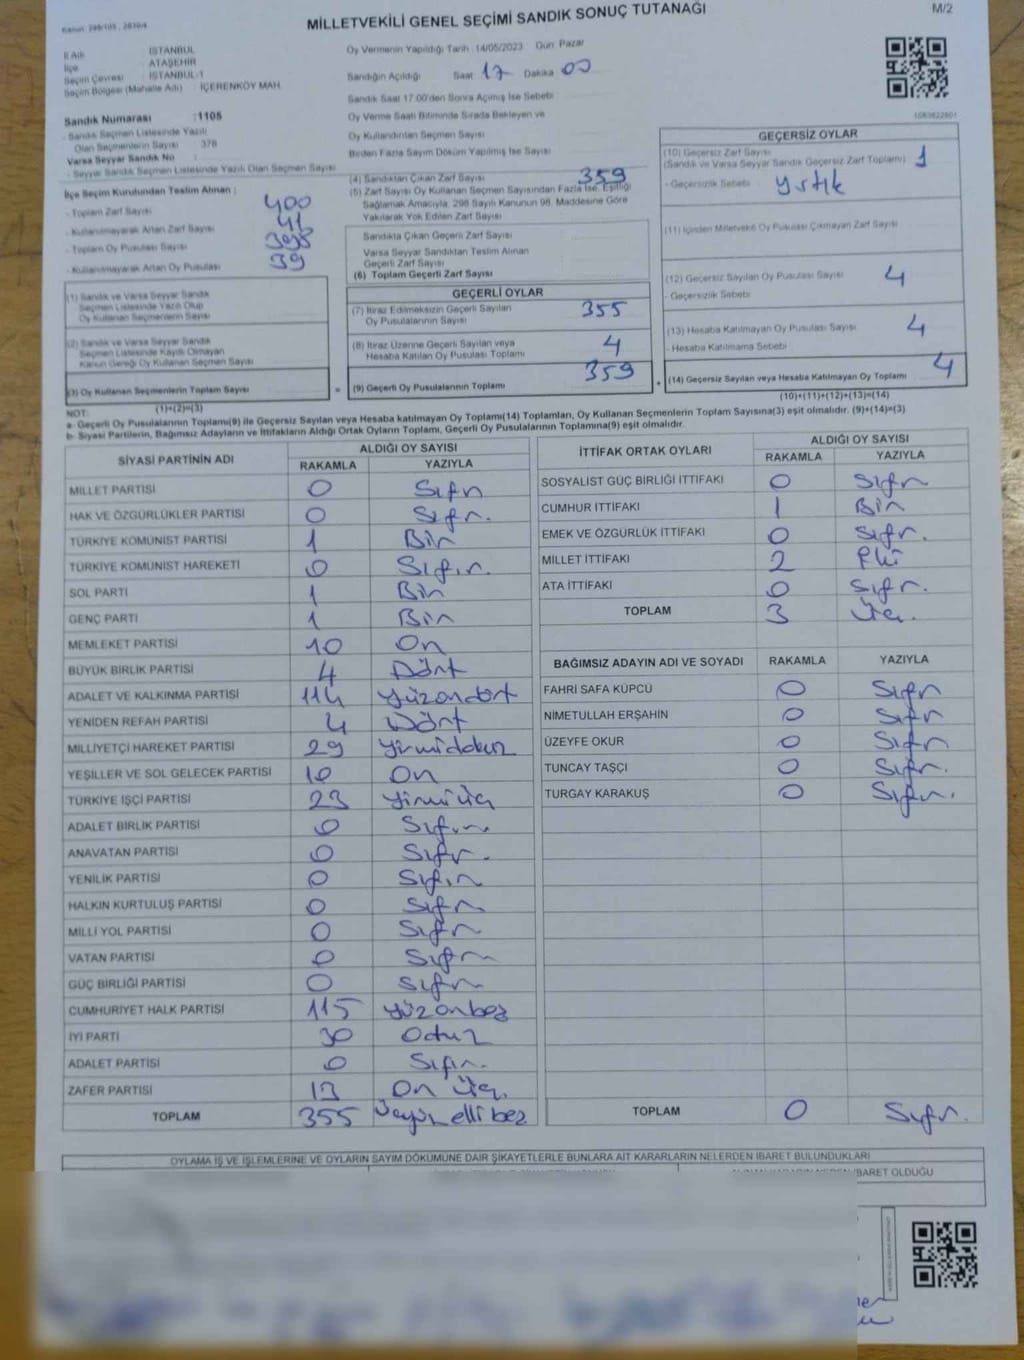 MİLLETVEKİLİ GENEL SEÇİMİ SANDIK SONUÇ TUTANAĞI
M/2
İl Adı : İSTANBUL
İlçe : ATAŞEHİR
Seçim Çevresi : İSTANBUL-1
Seçim Bölgesi (Mahalle Adı) : İÇERENKÖY MAH.
Sandık Numarası :1105
- Sandık Seçmen Listesinde Yazılı
Olan Seçmenlerin Sayısı : 378
Varsa Seyyar Sandık No :
- Seyyar Sandık Seçmen Listesinde Yazılı Olan Seçmen Sayısı
İlçe Seçim Kurulundan Teslim Alınan ;
- Toplam Zarf Sayısı 400
- Kullanılmayarak Artan Zarf Sayısı 41
- Toplam Oy Pusulası Sayısı 398
- Kullanılmayarak Artan Oy Pusulası 39
(1) Sandık ve Varsa Seyyar Sandık
Seçmen Listesinde Yazılı Olup
Oy Kullanan Seçmenlerin Sayısı
(2) Sandık ve Varsa Seyyar Sandık
Seçmen Listesinde Kayıtlı Olmayan
Kanun Gereği Oy Kullanan Seçmen Sayısı
(3) Oy Kullanan Seçmenlerin Toplam Sayısı
(1)+(2)=(3)
Oy Vermenin Yapıldığı Tarih : 14/05/2023 Gün: Pazar
Sandığın Açıldığı Saat 17 Dakika 00
Sandık Saat 17:00'den Sonra Açılmış İse Sebebi
Oy Verme Saati Bitiminde Sırada Bekleyen ve
Oy Kullandırılan Seçmen Sayısı
Birden Fazla Sayım Döküm Yapılmış İse Sayısı
(4) Sandıktan Çıkan Zarf Sayısı 359
(5) Zarf Sayısı Oy Kullanan Seçmen Sayısından Fazla İse, Eşitliği
Sağlamak Amacıyla; 298 Sayılı Kanunun 98. Maddesine Göre
Yakılarak Yok Edilen Zarf Sayısı
Sandıkta Çıkan Geçerli Zarf Sayısı
Varsa Seyyar Sandıktan Teslim Alınan
Geçerli Zarf Sayısı
(6) Toplam Geçerli Zarf Sayısı
GEÇERLİ OYLAR
(7) İtiraz Edilmeksizin Geçerli Sayılan
Oy Pusulalarının Sayısı 355
(8) İtiraz Üzerine Geçerli Sayılan veya
Hesaba Katılan Oy Pusulası Toplamı 4
= (9) Geçerli Oy Pusulalarının Toplamı 359
GEÇERSİZ OYLAR
(10) Geçersiz Zarf Sayısı
(Sandık ve Varsa Seyyar Sandık Geçersiz Zarf Toplamı) 1
- Geçersizlik Sebebi : Yırtık
(11) İçinden Milletvekili Oy Pusulası Çıkmayan Zarf Sayısı
(12) Geçersiz Sayılan Oy Pusulası Sayısı 4
- Geçersizlik Sebebi
(13) Hesaba Katılmayan Oy Pusulası Sayısı 4
- Hesaba Katılmama Sebebi
+ (14) Geçersiz Sayılan veya Hesaba Katılmayan Oy Toplamı 4
(10)+(11)+(12)+(13)=(14)
NOT:
a- Geçerli Oy Pusulalarının Toplamı(9) ile Geçersiz Sayılan veya Hesaba katılmayan Oy Toplamı(14) Toplamları, Oy Kullanan Seçmenlerin Toplam Sayısına(3) eşit olmalıdır. (9)+(14)=(3)
b- Siyasi Partilerin, Bağımsız Adayların ve İttifakların Aldığı Ortak Oyların Toplamı, Geçerli Oy Pusulalarının Toplamına(9) eşit olmalıdır.
SİYASİ PARTİNİN ADI ALDIĞI OY SAYISI
RAKAMLA YAZIYLA
MİLLET PARTİSİ 0 Sıfır
HAK VE ÖZGÜRLÜKLER PARTİSİ 0 Sıfır.
TÜRKİYE KOMÜNİST PARTİSİ 1 Bir
TÜRKİYE KOMÜNİST HAREKETİ 0 Sıfır.
SOL PARTİ 1 Bir
GENÇ PARTİ 1 Bir
MEMLEKET PARTİSİ 10 On
BÜYÜK BİRLİK PARTİSİ 4 Dört
ADALET VE KALKINMA PARTİSİ 114 Yüzondört
YENİDEN REFAH PARTİSİ 4 Dört
MİLLİYETÇİ HAREKET PARTİSİ 29 Yirmidokuz
YEŞİLLER VE SOL GELECEK PARTİSİ 10 On
TÜRKİYE İŞÇİ PARTİSİ 23 Yirmiüç
ADALET BİRLİK PARTİSİ 0 Sıfır.
ANAVATAN PARTİSİ 0 Sıfır.
YENİLİK PARTİSİ 0 Sıfır
HALKIN KURTULUŞ PARTİSİ 0 Sıfır
MİLLİ YOL PARTİSİ 0 Sıfır
VATAN PARTİSİ 0 Sıfır
GÜÇ BİRLİĞİ PARTİSİ 0 Sıfır
CUMHURİYET HALK PARTİSİ 115 Yüzonbeş
İYİ PARTİ 30 Otuz
ADALET PARTİSİ 0 Sıfır.
ZAFER PARTİSİ 13 On üç.
TOPLAM 355 Üçyüz elli beş
İTTİFAK ORTAK OYLARI ALDIĞI OY SAYISI
RAKAMLA YAZIYLA
SOSYALİST GÜÇ BİRLİĞİ İTTİFAKI 0 Sıfır
CUMHUR İTTİFAKI 1 Bir
EMEK VE ÖZGÜRLÜK İTTİFAKI 0 Sıfır.
MİLLET İTTİFAKI 2 İki
ATA İTTİFAKI 0 Sıfır.
TOPLAM 3 Üç.
BAĞIMSIZ ADAYIN ADI VE SOYADI RAKAMLA YAZIYLA
FAHRİ SAFA KÜPCÜ 0 Sıfır
NİMETULLAH ERŞAHİN 0 Sıfır
ÜZEYFE OKUR 0 Sıfır
TUNCAY TAŞÇI 0 Sıfır.
TURGAY KARAKUŞ 0 Sıfır.
TOPLAM 0 Sıfır.
OYLAMA İŞ VE İŞLEMLERİNE VE OYLARIN SAYIM DÖKÜMÜNE DAİR ŞİKAYETLERLE BUNLARA AİT KARARLARIN NELERDEN İBARET BULUNDUKLARI
İBARET OLDUĞU